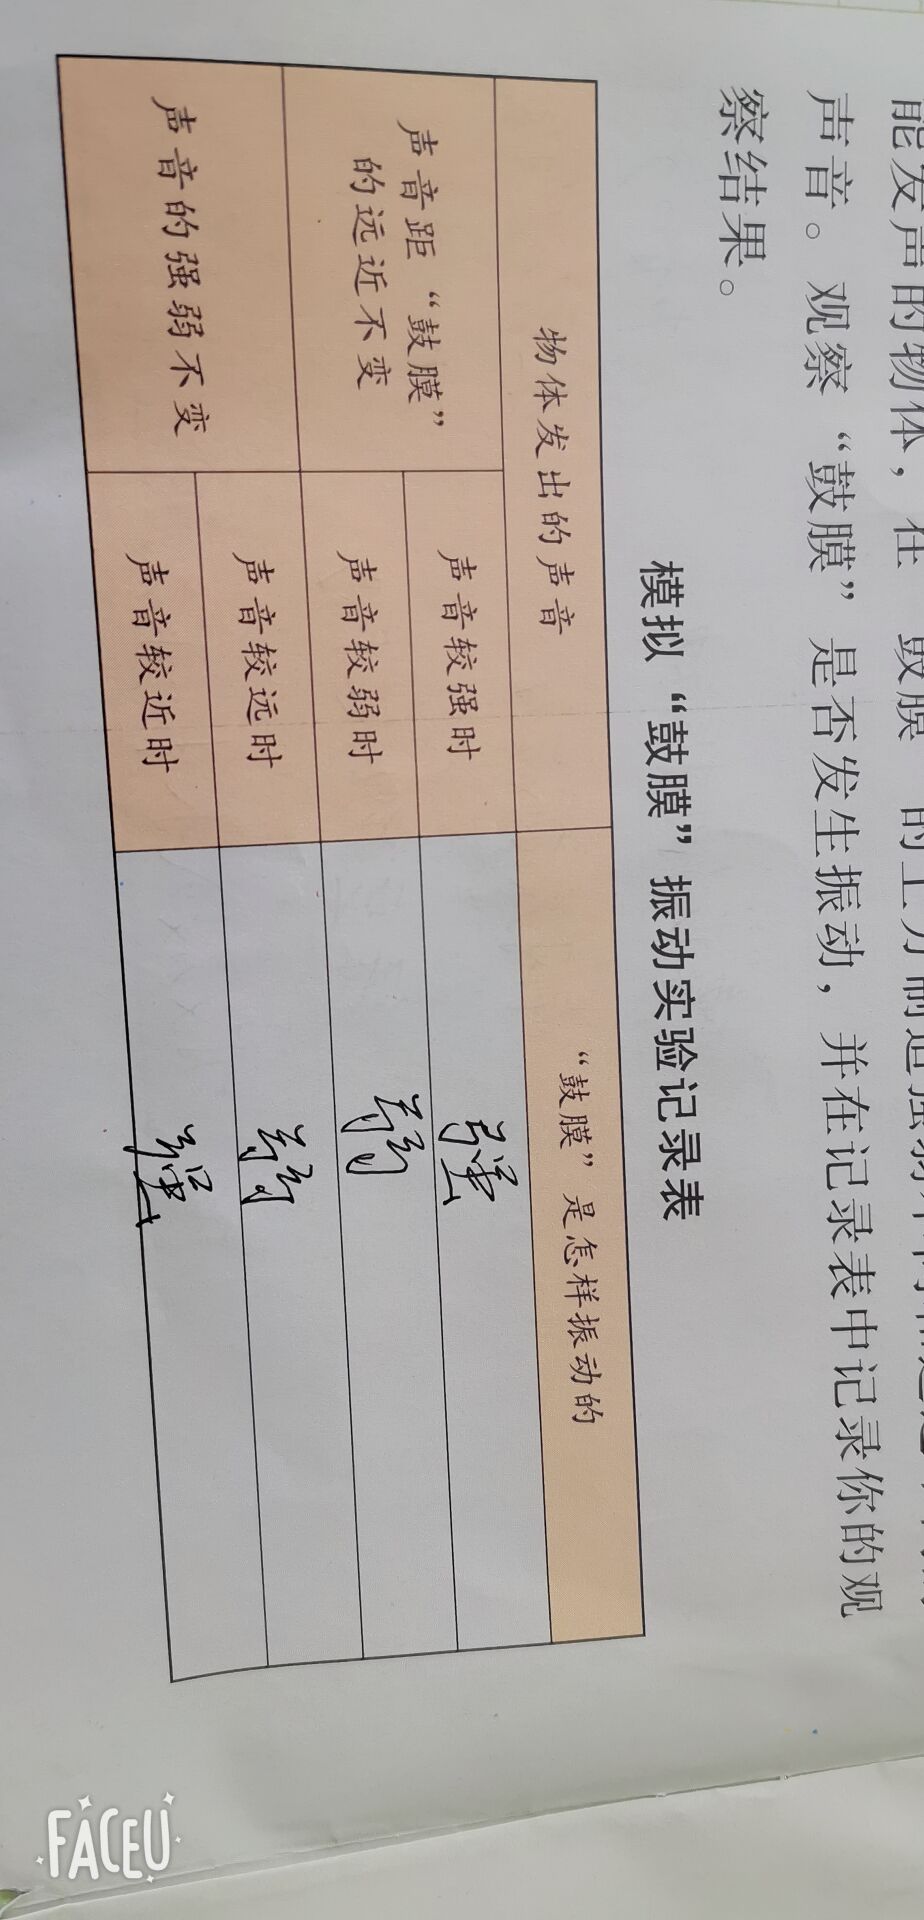 能发声的物体，在“鼓膜”的上方制造强弱不同和远近不同的
声音。观察“鼓膜”是否发生振动，并在记录表中记录你的观
察结果。
模拟“鼓膜”振动实验记录表
物体发出的声音
“鼓膜”是怎样振动的
声音距“鼓膜”
的远近不变
声音较强时
强
声音较弱时
弱
声音的强弱不变
声音较远时
弱
声音较近时
强
FACEU